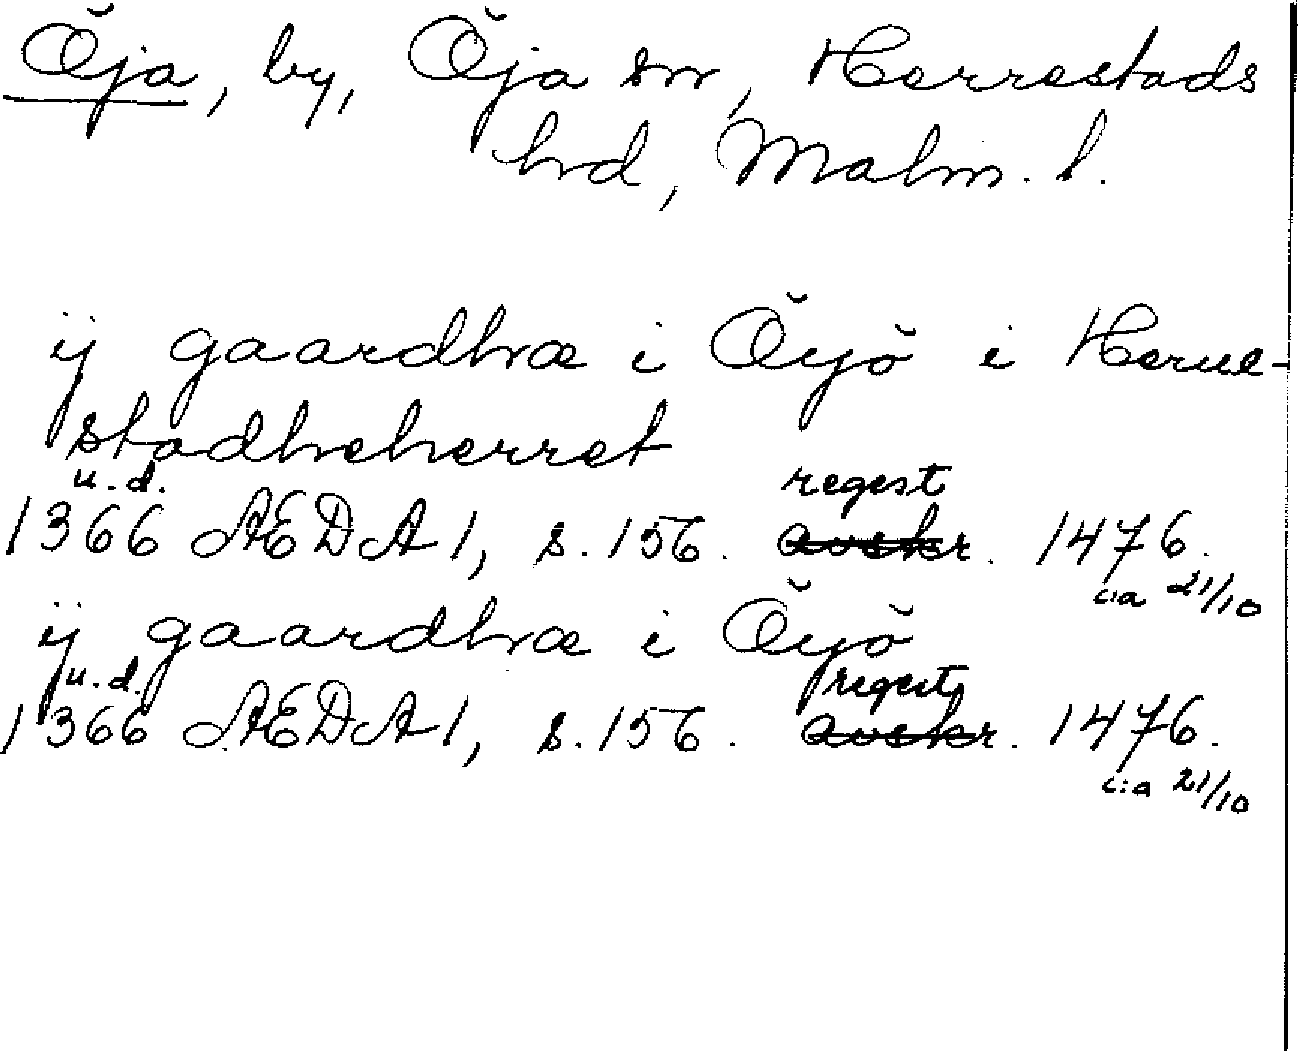 Öja, by, Öja sn, Herrestads
hrd, Malm. l.
ij gaardhæ i Öyö i Herrue-
stadheherret
u.d. regest
1366 ÆDA 1, s. 156. avskr. 1476.
c:a 21/10
ij gaardhæ i Öyö
u.d. regest
1366 ÆDA 1, s. 156. avskr. 1476.
c:a 21/10